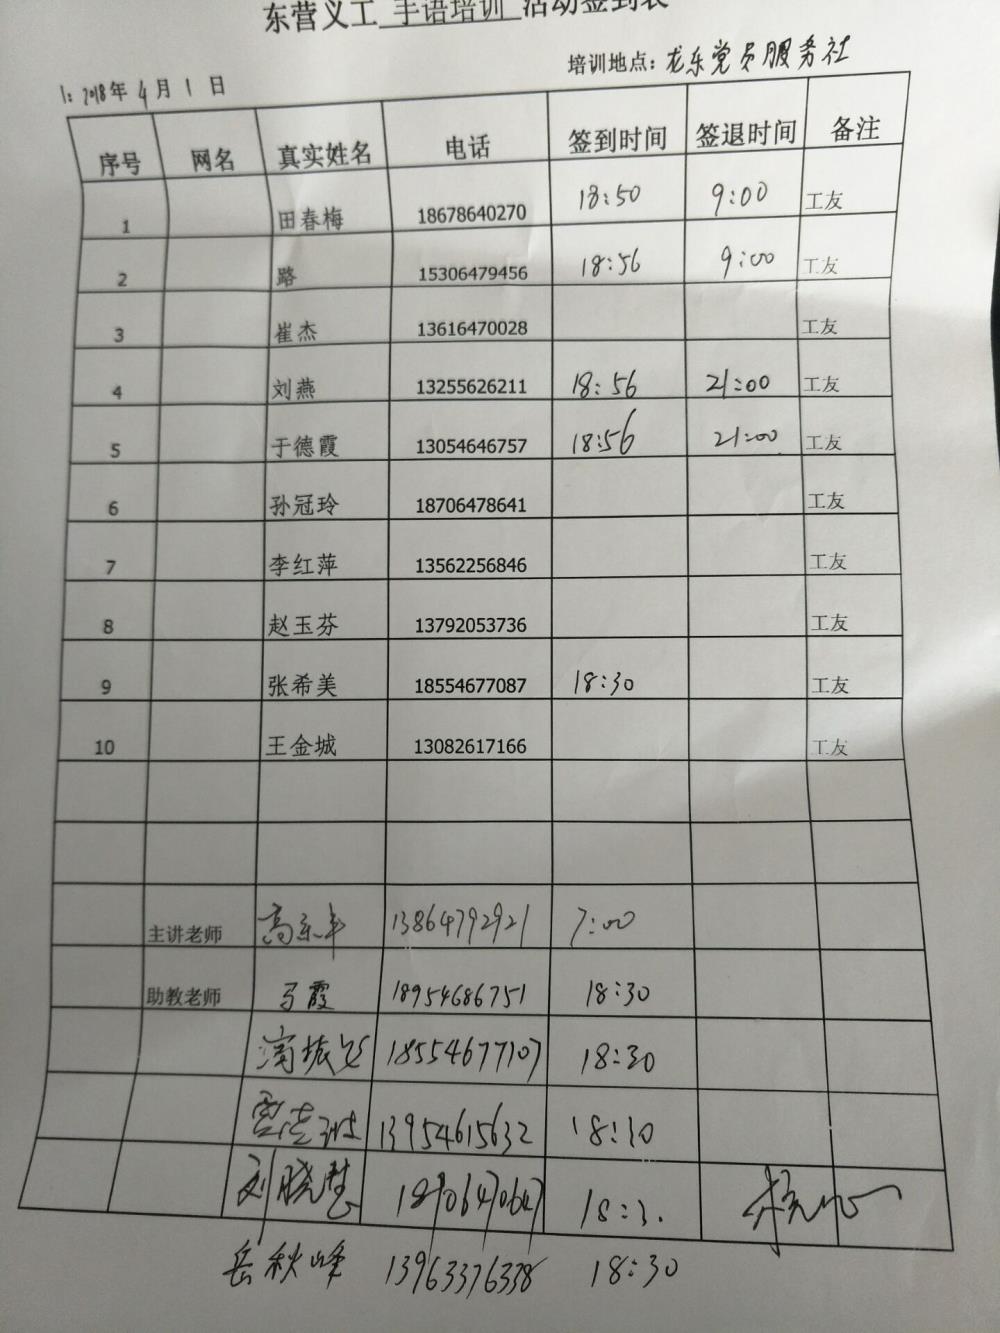 东营义工 手语培训 活动签到表
培训地点：龙乐党员服务社
：2018年 4月 1 日
序号 网名 真实姓名 电话 签到时间 签退时间 备注
1 田春梅 18678640270 18:50 9:00 工友
2 路 15306479456 18:56 9:00 工友
3 崔杰 13616470028 工友
4 刘燕 13255626211 18:56 21:00 工友
5 于德霞 13054646757 18:56 21:00 工友
6 孙冠玲 18706478641 工友
7 李红萍 13562256846 工友
8 赵玉芬 13792053736 工友
9 张希美 18554677087 18:30 工友
10 王金城 13082617166 工友
主讲老师 13864792921 7:00
助教老师 马霞 18954686751 18:30
18554677107 18:30
13954615632 18:30
刘晓慧 18:3.
岳秋峰 13963376338 18:30